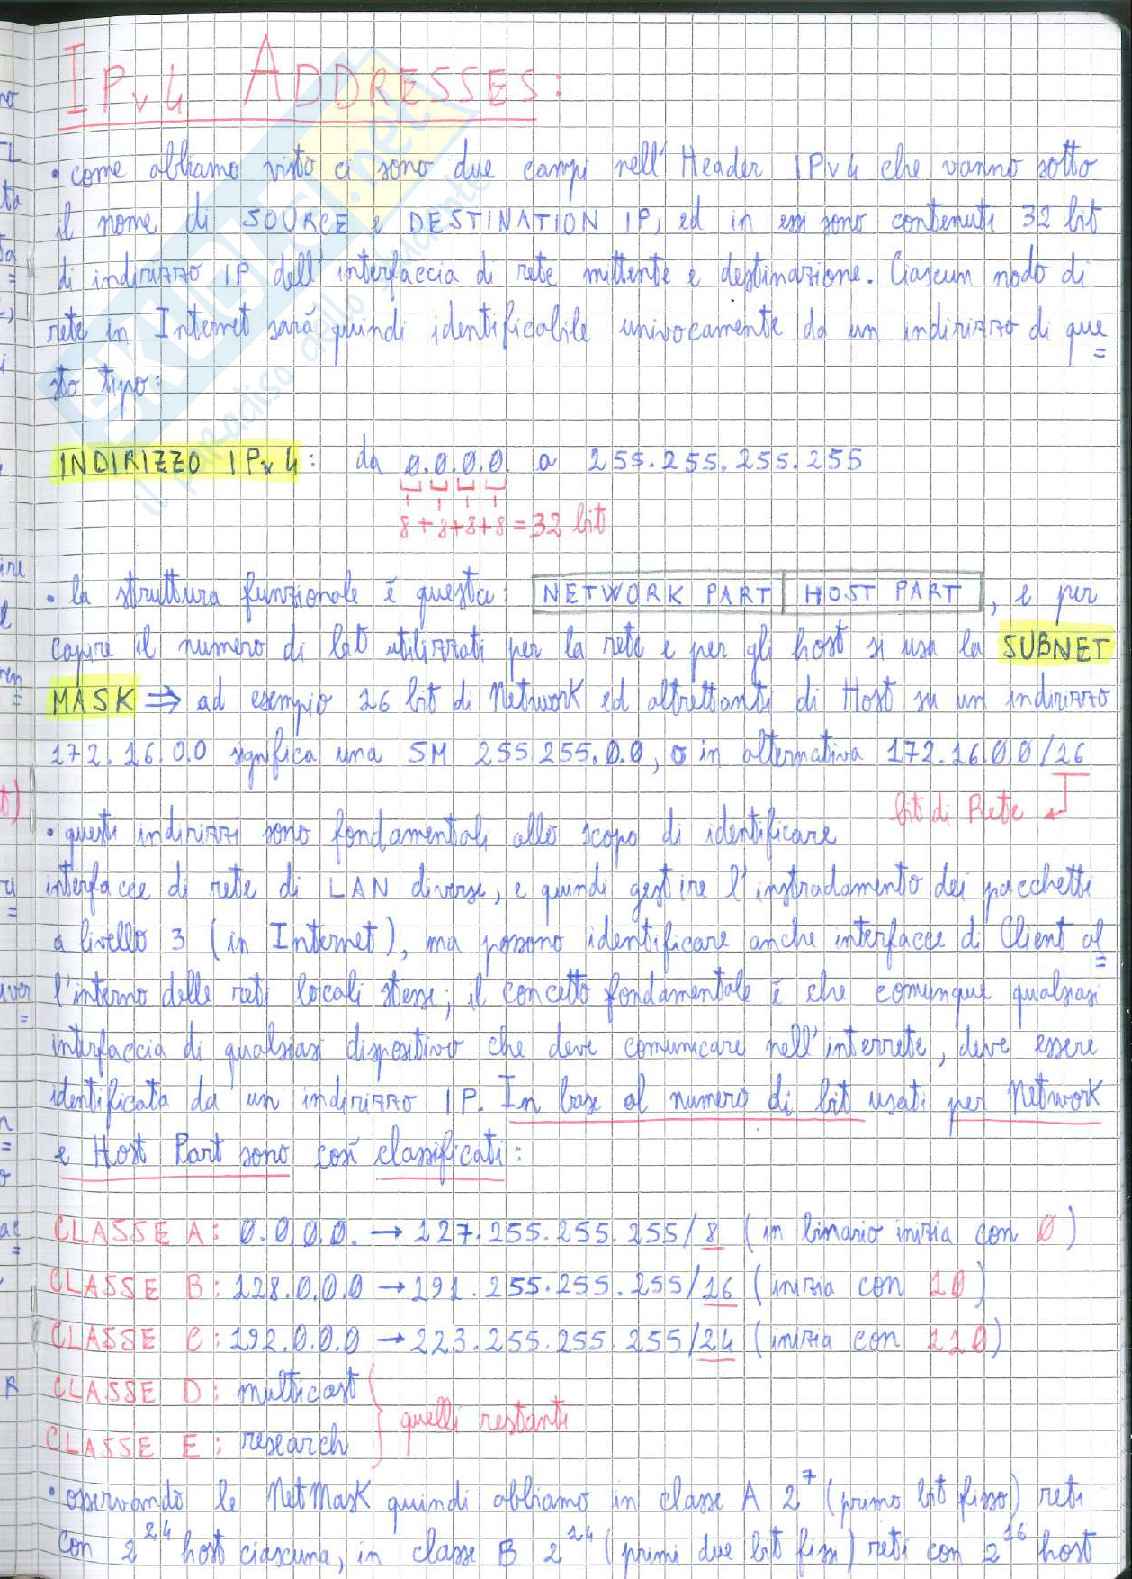 IPv4 ADDRESSES:
• come abbiamo visto ci sono due campi nell'Header IPv4 che vanno sotto
il nome di SOURCE e DESTINATION IP, ed in essi sono contenuti 32 bit
di indirizzo IP dell'interfaccia di rete mittente e destinazione. Ciascun nodo di
rete in Internet sarà quindi identificabile univocamente da un indirizzo di que=
sto tipo:
INDIRIZZO IPv4: da 0.0.0.0. a 255.255.255.255
8+8+8+8=32 bit
• la struttura funzionale è questa: NETWORK PART | HOST PART, e per
capire il numero di bit utilizzati per la rete e per gli host si usa la SUBNET
MASK ⇒ ad esempio 16 bit di Network ed altrettanti di Host su un indirizzo
172.16.0.0 significa una SM 255.255.0.0, o in alternativa 172.16.0.0/16
bit di Rete
• questi indirizzi sono fondamentali allo scopo di identificare
interfacce di rete di LAN diverse, e quindi gestire l'instradamento dei pacchetti
a livello 3 (in Internet), ma possono identificare anche interfacce di Client al=
l'interno delle reti locali stesse; il concetto fondamentale è che comunque qualsiasi
interfaccia di qualsiasi dispositivo che deve comunicare nell'interrete, deve essere
identificata da un indirizzo IP. In base al numero di bit usati per Network
e Host Part sono così classificati:
CLASSE A: 0.0.0.0. → 127.255.255.255/8 (in binario inizia con 0)
CLASSE B: 128.0.0.0 → 191.255.255.255/16 (inizia con 10)
CLASSE C: 192.0.0.0 → 223.255.255.255/24 (inizia con 110)
CLASSE D: multicast
CLASSE E: research
quelli restanti
• osservando le NetMask quindi abbiamo in classe A 2^7 (primo bit fisso) reti
con 2^24 host ciascuna, in classe B 2^14 (primi due bit fissi) reti con 2^16 host